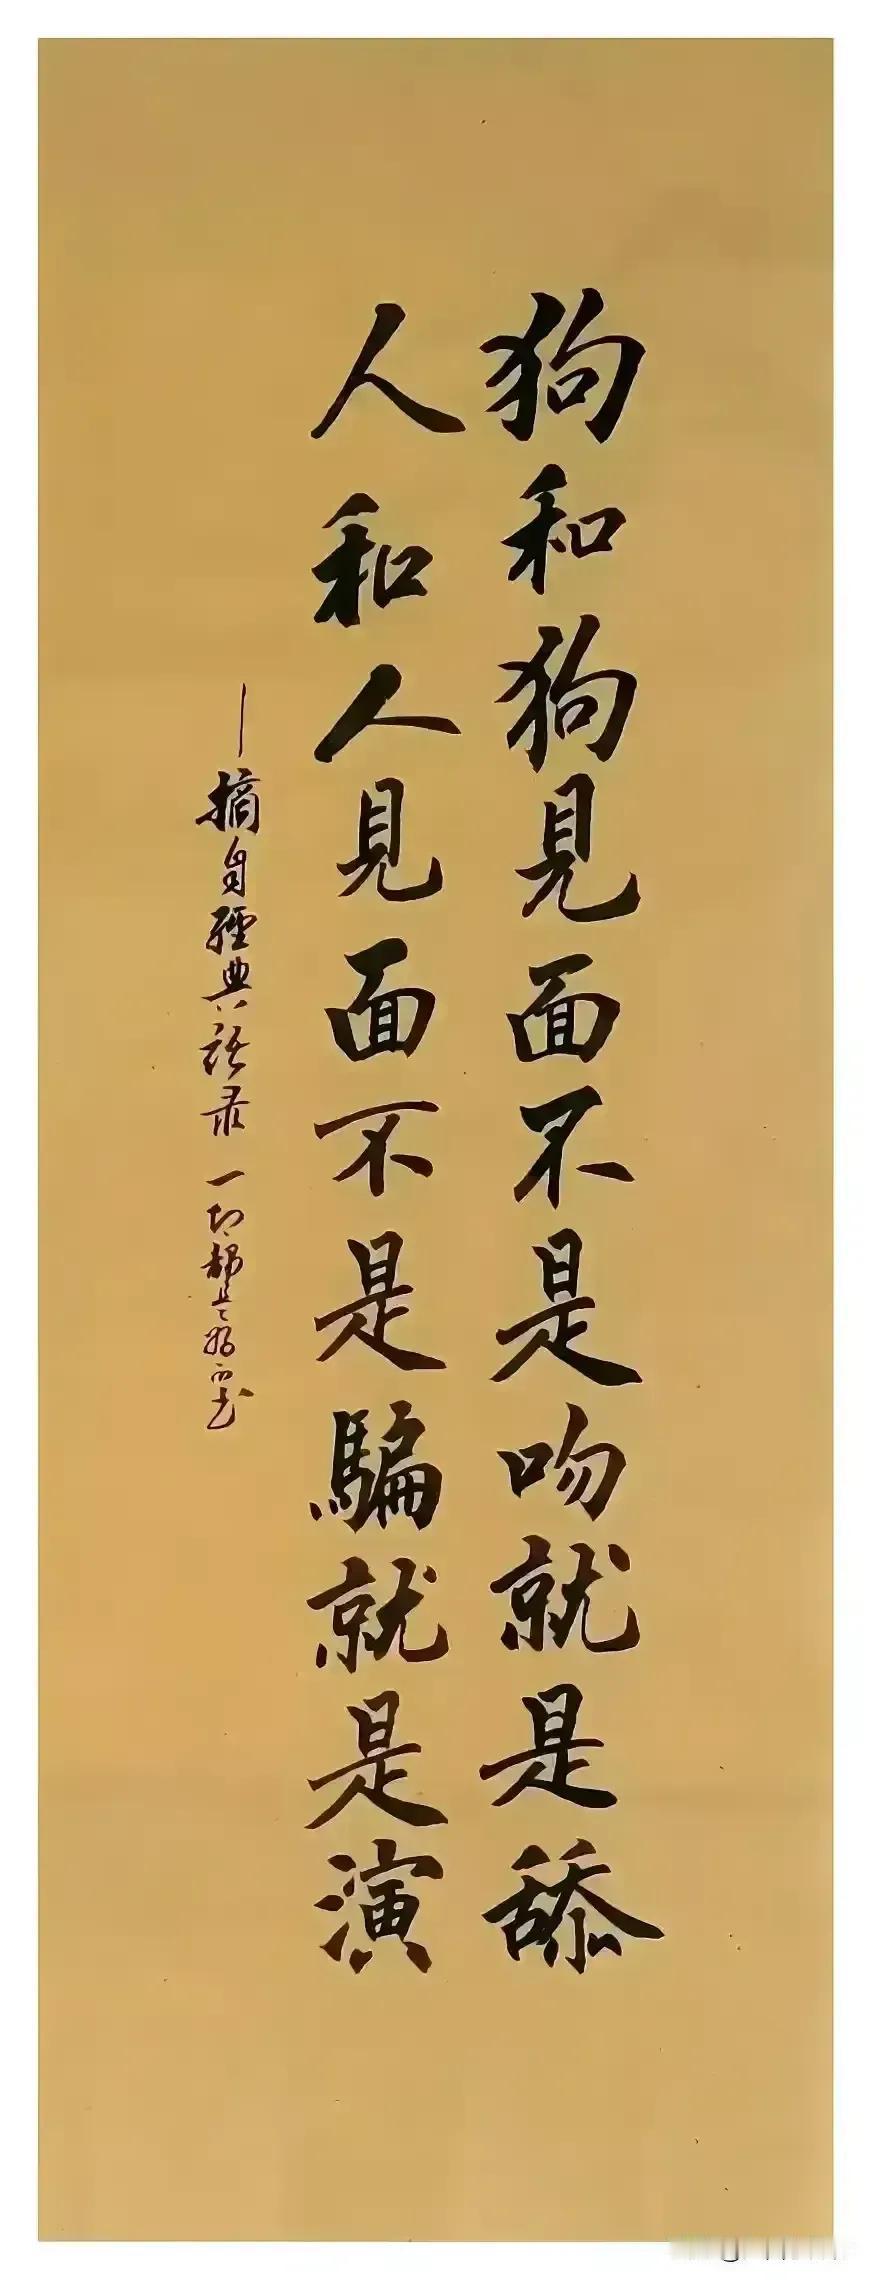 狗和狗見面不是吻就是舔
人和人見面不是騙就是演
—摘自經典语录 一切都是